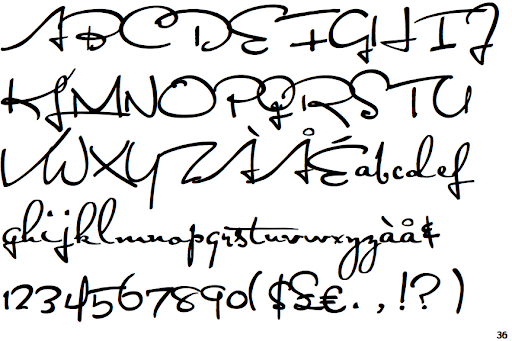 ABCDEFGHIJ
KLMNOPQRSTU
VWXYZÀÅÉabcdef
ghijklmnopqrstuvwxyzàå¢
1234567890($£€.,!?)
36